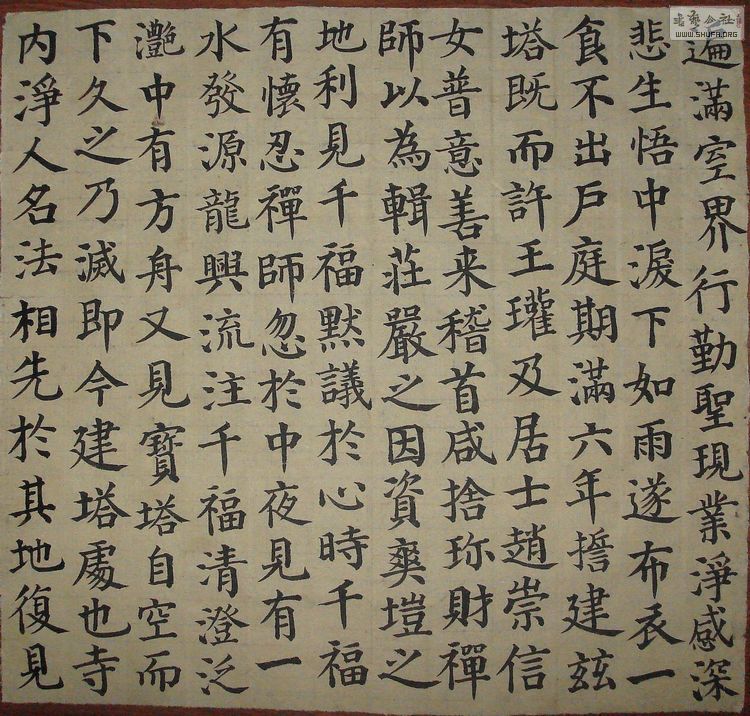 遍滿空界行勤聖現業淨感深
悲生悟中淚下如雨遂布衣一
食不出戶庭期滿六年擔建茲
塔既而許王瓘及居士趙崇信
女普意善来稽首咸捨珎財禪
師以為輯莊嚴之因資爽塏之
地利見千福默議於心時千福
有懷忍禪師忽於中夜見有一
水發源龍興流注千福清澄泛
灧中有方舟又見寶塔自空而
下久之乃滅即今建塔處也寺
内淨人名法相先於其地復見
WWW.SHUFA.ORG